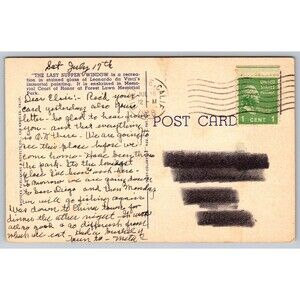 Sat July 19th
"THE LAST SUPPER" WINDOW is a recrea-
tion in stained glass of Leonardo da Vinci's
immortal painting. It is enshrined in Memo-
rial Court of Honor at Forest Lawn Memorial
Park.
Dear Elsie:- Rec'd your
card yesterday also your
letter. So glad to hear from
you and that everything
is O.K. there. We are going to
see this place before we
come home. Have been thru
the park. Its the
place I've been
Tomorrow we are going down
to San Diego and then Monday
we will go fishing again
Was down to China town for
dinner the other night. It was
all so good & so different from
what we eat. Had a bushel of
fun to - Meta
CALIF
POST CARD
1 CENT 1